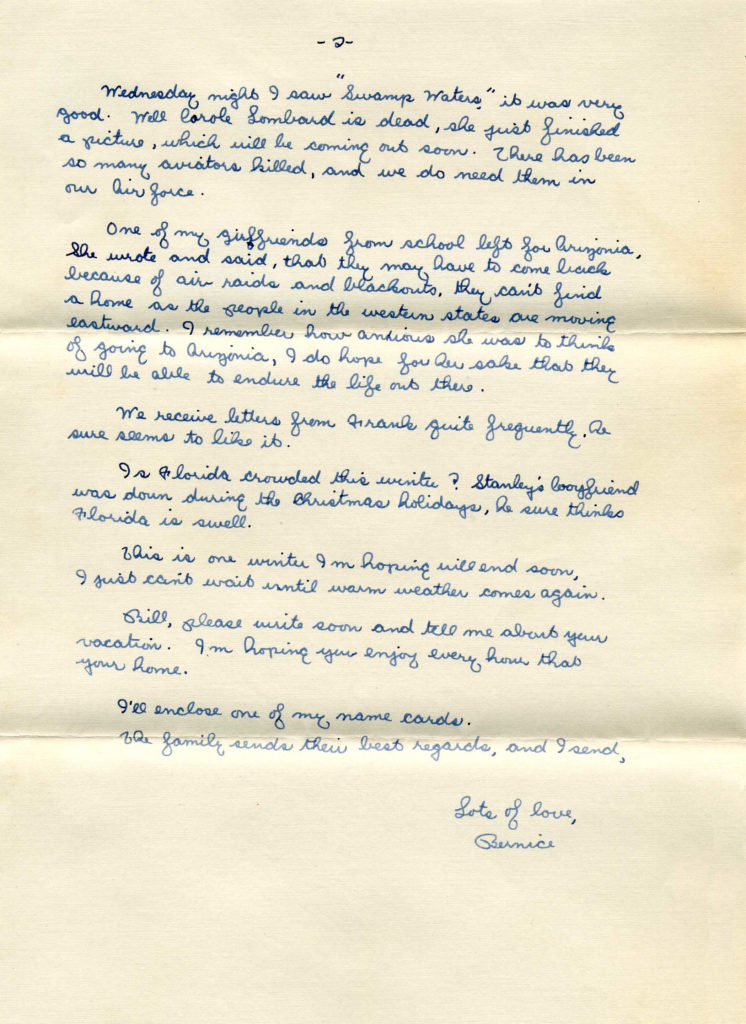 -2-
Wednesday night I saw "Swamp Waters," it was very
good. Well Carole Lombard is dead, she just finished
a picture, which will be coming out soon. There has been
so many aviators killed, and we do need them in
our air force.
One of my girlfriends from school left for Arizonia,
She wrote and said, that they may have to come back
because of air raids and blackouts, they can't find
a home as the people in the western states are moving
eastward. I remember how anxious she was to think
of going to Arizonia, I do hope for her sake that they
will be able to endure the life out there.
We receive letters from Frank quite frequently, he
sure seems to like it.
Is Florida crowded this winter? Stanley's boyfriend
was down during the Christmas holidays, he sure thinks
Florida is swell.
This is one winter I'm hoping will end soon,
I just can't wait until warm weather comes again.
Bill, please write soon and tell me about your
vacation. I'm hoping you enjoy every hour that
your home.
I'll enclose one of my name cards.
The family sends their best regards, and I send,
Lots of love,
Bernice